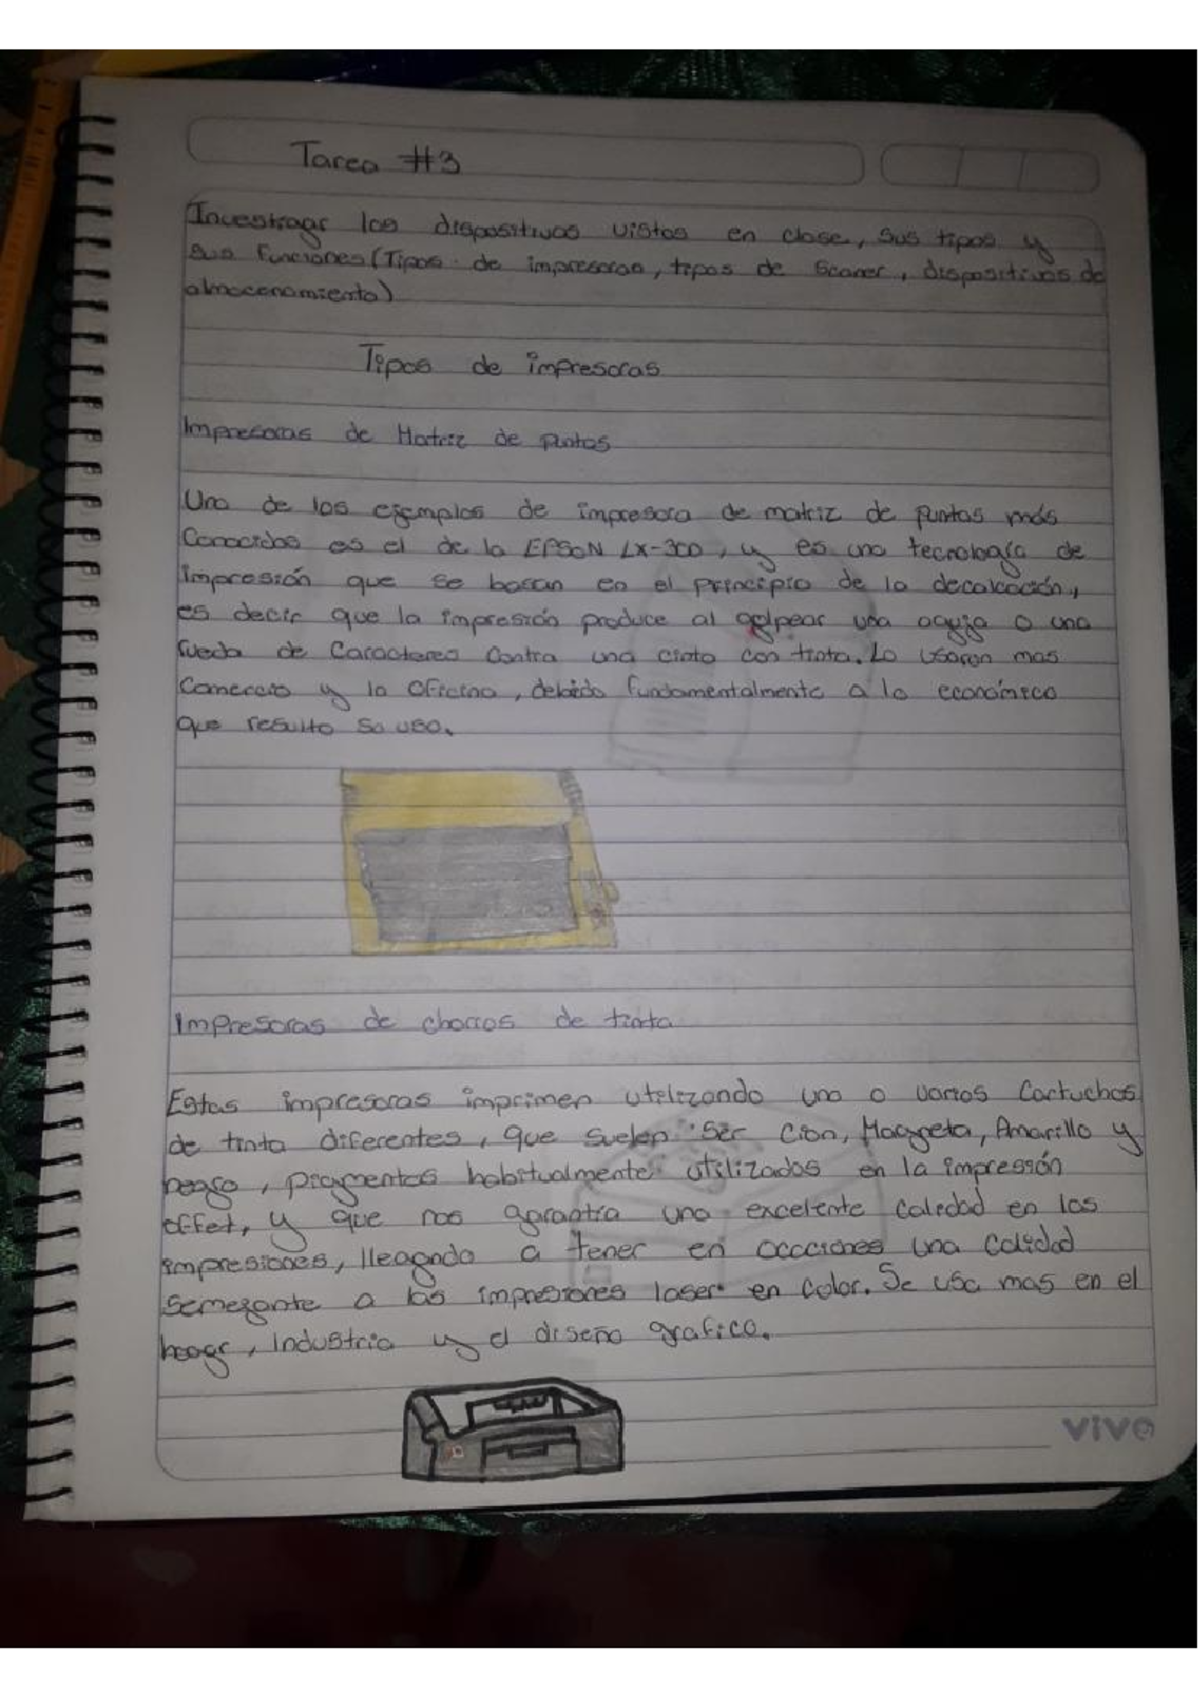 Tarea #3
Investigar los dispositivos vistos en clase, sus tipos y
sus funciones (Tipos de impresoras, tipos de Scaner, dispositivos de
almacenamiento)
Tipos de impresoras
Impresoras de Matriz de puntos
Uno de los ejemplos de impresora de matriz de puntas más
Conocidas es el de la EPSON LX-300, y es una tecnología de
impresión que se basan en el principio de la decalcación,
es decir que la impresión produce al golpear una aguja o una
rueda de Caracteres Contra una cinta con tinta. Lo usaron mas
Comercio y la oficina, debido fundamentalmente a lo económico
que resulto su uso.
Impresoras de chorros de tinta
Estas impresoras imprimen utilizando uno o varios Cartuchos
de tinta diferentes, que suelen ser Cion, Magneta, Amarillo y
negro, pigmentos habitualmente utilizados en la impresión
offet, y que nos garantia una excelente calidad en las
impresiones, lleagndo a tener en occciones una Calidad
Semejante a las impresiones laser en Color. Se usa mas en el
hoagr, Industria y el diseño grafico.
vivo